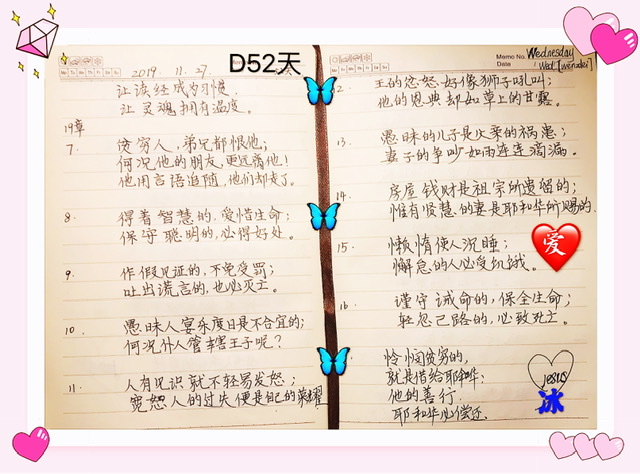 D52天
2019. 11. 27
让读经成为习惯,
让灵魂拥有温度。
19章
7. 贫穷人,弟兄都恨他;
何况他的朋友,更远离他!
他用言语追随,他们却走了。
8. 得着智慧的,爱惜生命;
保守聪明的,必得好处。
9. 作假见证的,不免受罚;
吐出谎言的,也必灭亡。
10. 愚昧人宴乐度日是不合宜的;
何况仆人管辖王子呢?
11. 人有见识就不轻易发怒;
宽恕人的过失便是自己的荣耀
Memo No. Wednesday
Date
12. 王的忿怒好像狮子吼叫;
他的恩典却如草上的甘露。
13. 愚昧的儿子是父亲的祸患;
妻子的争吵如雨连连滴漏。
14. 房屋钱财是祖宗所遗留的;
惟有贤慧的妻是耶和华所赐的.
15. 懒惰使人沉睡;
懈怠的人必受饥饿。
爱
16. 谨守诫命的,保全生命;
轻忽己路的,必致死亡。
怜悯贫穷的,
就是借给耶和华;
他的善行,
耶和华必偿还.
jesus
冰